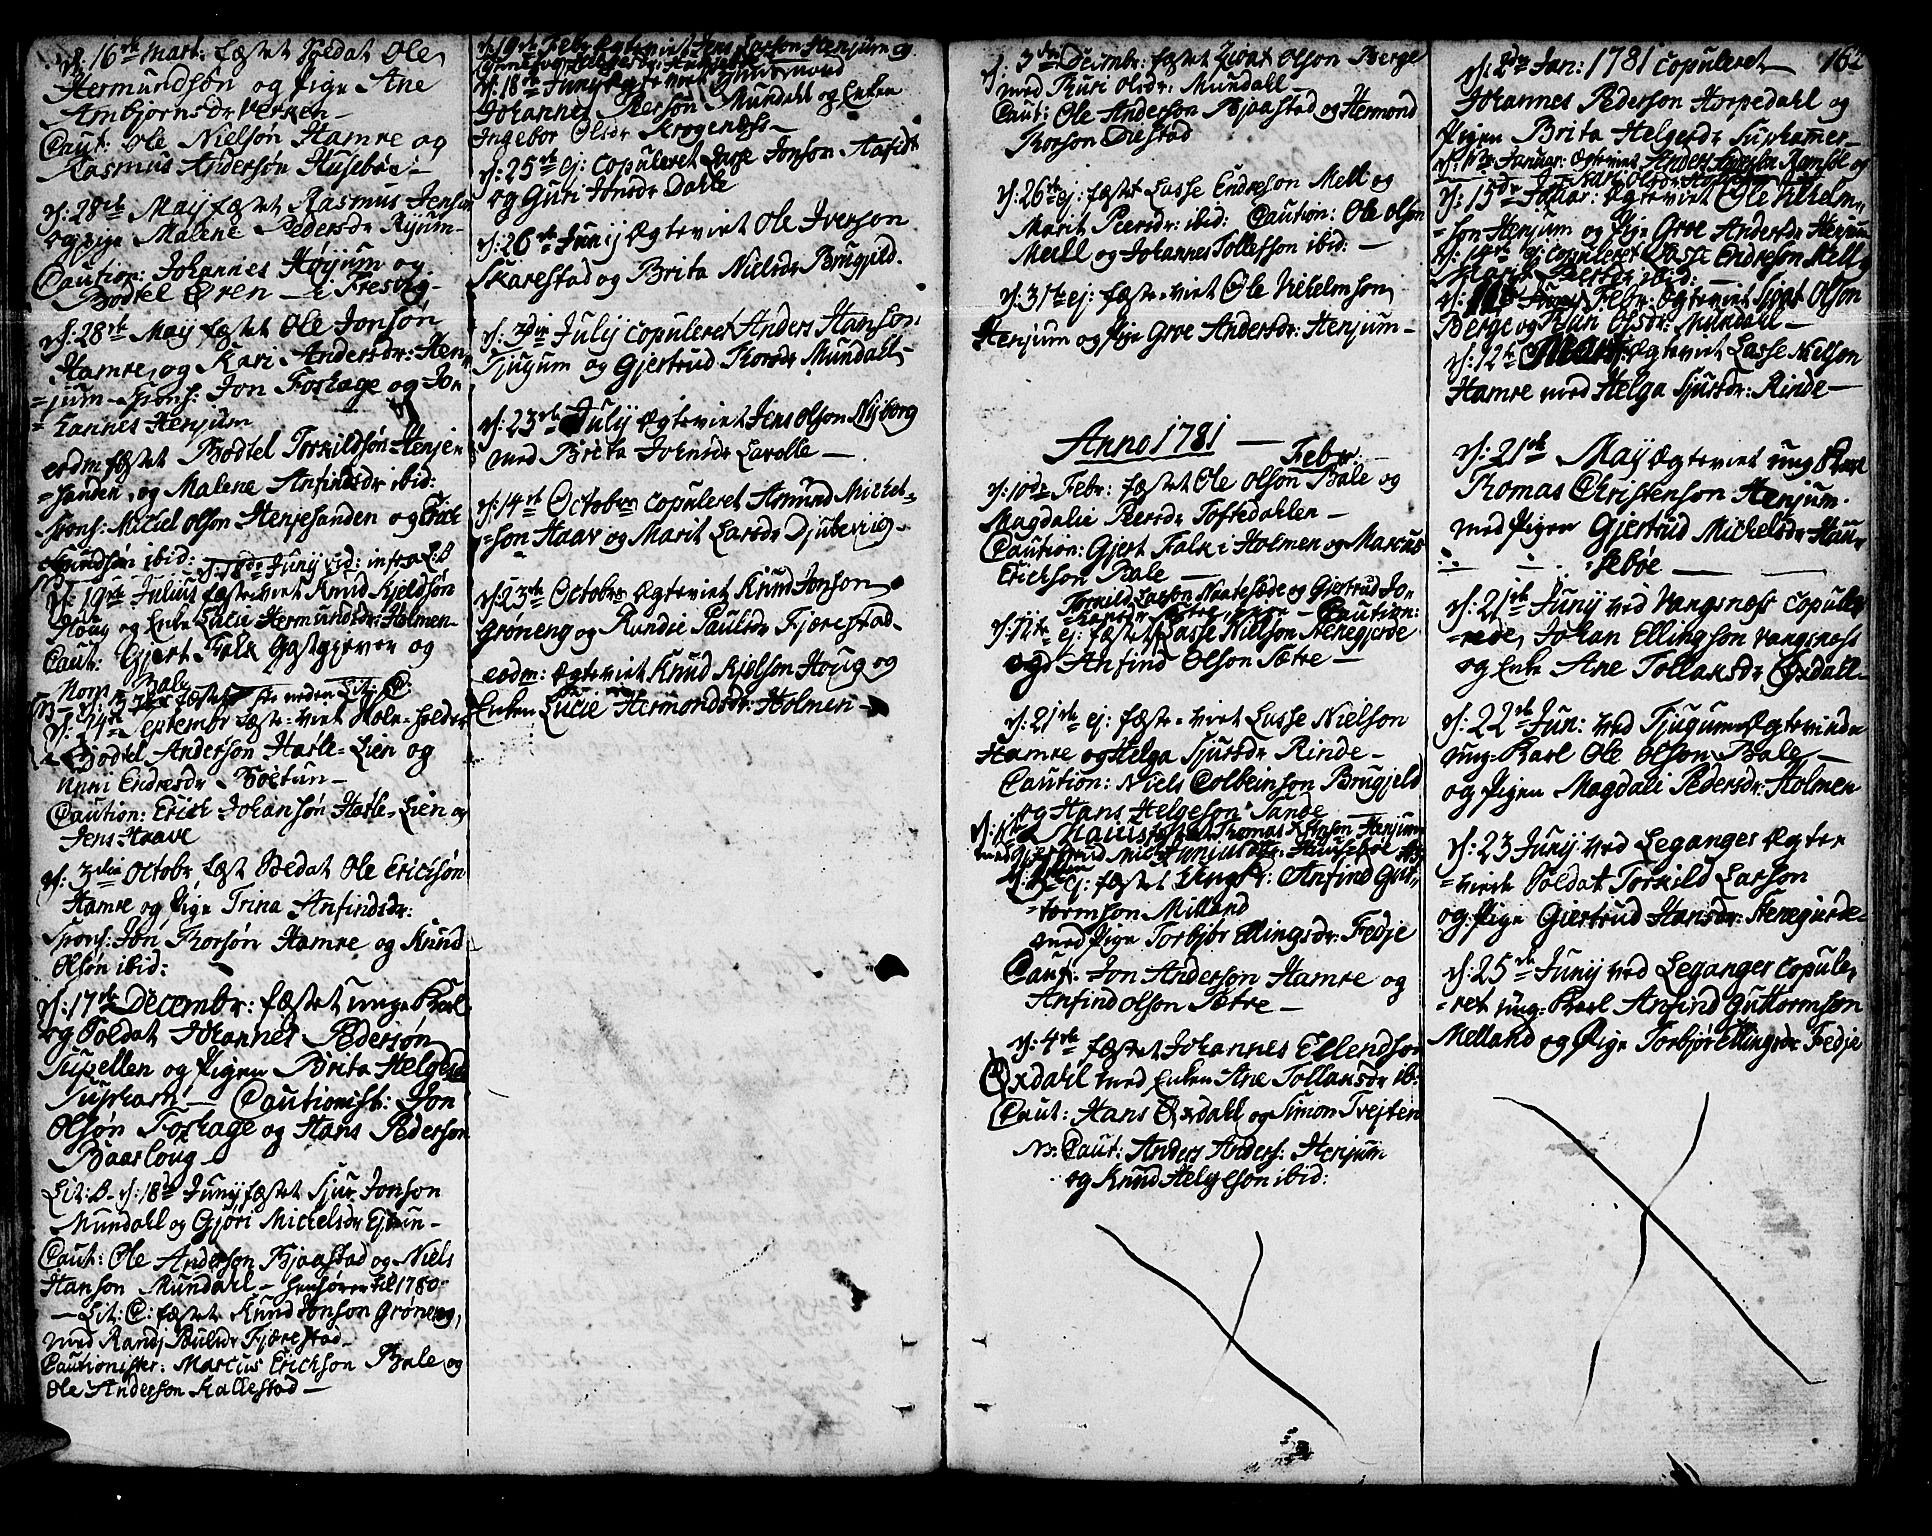 d: 16de Mart: fæstet Soldat Ole
Hermundsøn og Pige Ane
Anbjørnsdr Verken
Caut: Ole Nielsøn Hamre og
Rasmus Andersøn Husebøe
d: 28de Maij fæstet Rasmus Jensøn
og pige Malene Pedersdr Rijum
Caution: Johannes Høyum og
Bodtel Øren i Fresvig
d: 28de Maij fæstet Ole Jonsøn
Hamre, og Kari Andersdr: Hen
=jum Spons: Jon Forhage og Jo
=hannes Henjum
eodm fæstet Bodtel Torkildsøn Henje
=sanden, og Malene Anfindsdr ibid:
Spons: Mickel Olson Henjesanden og Erik
Amundsøn ibid:
d: 18de Junij vid: infra Lit B
d: 19de Julius fæste-viet Knud Kieldsøn
Houg og Enke Lucie Hermundsdr: Holmen
Caut: Gjert Falk Gastgiever og
Bale
d: 24de Septembr fæste-viet
Bodtel Anderson Hatle-Lien og
Unni Endresdr Bøetun
Caution: Erick Johansøn Hatle-Lien og
Jens Haave
d: 3die Octobr fæst Soldat Ole Ericksøn
Hamre og Pige Trina Anfindsdr:
Spons: Jon Thorsøn Hamre og Knud
Olsøn ibid:
d: 17de Decembr: fæstet unge Karl
og Soldat Johannes Pedersøn
Supellen og Pigen Brita Helgesd
Supham Cautionist: Jon
Olsøn Forhage og Hans Pederson
Baarloug
Lit: B. d: 18de Junij fæstet Sjur Jonson
Mundall og Gjøri Mickelsdr Ejtun
Caut: Ole Anderson Bjaastad og Niels
Hanson Mundahl henhører til 1780
Lit: C: fæstet Knud Jonson Grøneng,
med Randj Paulsdr Fjærestad
Cautionister: Marcus Erickson Bale og
Ole Anderson Hallestad
d: 19de Febr Ægteviet Jens Larson Henjum og
d: 18de Junij
Johannes Person Mundall og Enken
Ingebor Olsdr Krogenæss
d: 25de ej: copuleret Lasse Jonson Aafedt
og Guri Jonsdr Dalle
d: 26de Junij Ægteviet Ole Iverson
Skarestad og Brita Nielsdr Brugjeld.
d: 3die Julij copuleret Anders Hanson
Tjugum og Gjertrud Thorsdr Mundall
d: 23de Julij Ægteviet Jens Olson Nijborg
med Brita Johnsdr Lavolle
d: 14de October copuleret Amund Mickel=
=son Haav og Marit Larsdr Djubeviig
d: 23de Octobr Ægteviet Knud Jonson
Grøneng og Rundie Paulsdr Fjærestad
eodm: Ægteviet Knud Kjelson Houg og
Enken Lucie Hermondsdr: Holmen
d: 3die Decembr: fæstet Sjoat Olson Berge
med Kuri Olsdr: Mundall
Caut: Ole Anderson Bjaastad og Hermond
Thorson Diestad
d: 26de ej: fæstet Lasse Endreson Mell og
Marit Peersdr: ibid: Caution: Ole Olson
Mell og Johannes Tollefson ibid:
d: 31te ej: fæste-viet Ole Vilhelmson
Henjum og Pige Groe Andersdr: Henjum
Anno 1781
Febr:
d: 10de Febr: fæstet Ole Olson Bale og
Magdalie Peersdr Toftedahlen
Caution: Gjert Falk i Holmen og Marcus
Erickson Bale
Torkild Larson Naatesøde og Gjertrud
Caution:
d: 12te ej: fæstet Lasse Nielson Henegjerde
og Anfind Olson Sætre
d: 21de ej: fæste-viet Lasse Nielson
Hamre og Helga Sjursdr Rinde
Caution: Niels Colbeinson Brugjeld
og Hans Helgeson Tande
fæstet Thomas Henjum
fæstet Ungk: Anfind Gut-
=tormson Milland
med Pige Torbjør Ellingsdr: Fedje
Caut: Jon Anderson Hamre og
Anfind Olson Sætre
d: 4de fæstet Johannes Ellendson
Øxdahl med Enken Ane Tollaksdr ib:
Caut: Hans Øxdall og Simon Trejten
N: Caut: Anders Anders: Henjum
og Knud Helgeson ibid:
162
d: 2den Jan: 1781 copuleret
Johannes Pederson Horpedahl og
Pigen Brita Helgesdr Suphammer
Januar: Ægteviet Anders Iverson Ramsøe og
Kari Olsdr
d: 15de Januar: Ægteviet Ole Vilhelm=
=son Henjum og Pige Groe Andersdr Henjum
d: 14de ej: copuleret Lasse Endreson Mell og
Marit Peersdr ibid:
Febr: Ægteviet Sjoat Olson
Berge og Kuri Olsdr: Mundahl
d: 12te Marti Ægteviet Lasse Nielson
Hamre med Helga Sjursdr: Rinde
d: 21de Maij Ægteviet ung Karl
Thomas Christenson Henjum
med Pigen Gjertrud Mickelsdr Hau
=sebøe
d: 21de Junij ved Vangsness copule
=rede Johan Ellingson Vangsness
og Enke Ane Tollaksdr Øxdall
d: 22de Jun: ved Tjugum Ægteviede
ung-Karl Ole Olson Bale
og Pigen Magdali Pedersdr: Holmen
d: 23 Junij ved Leganger Ægte
=viede Soldat Torkild Larson
og Pige Giertrud Hansdr: Henegierde
d: 25de Junij ved Leganger copule,
=ret ung-Karl Anfind Guttormson
Melland og Pige Torbjør Ellingsdr Fedje